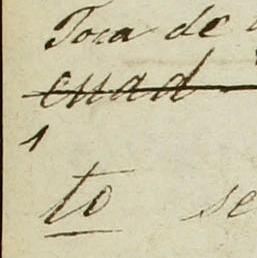 Toca de
enad
1
to se